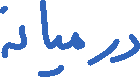 درمیانہ